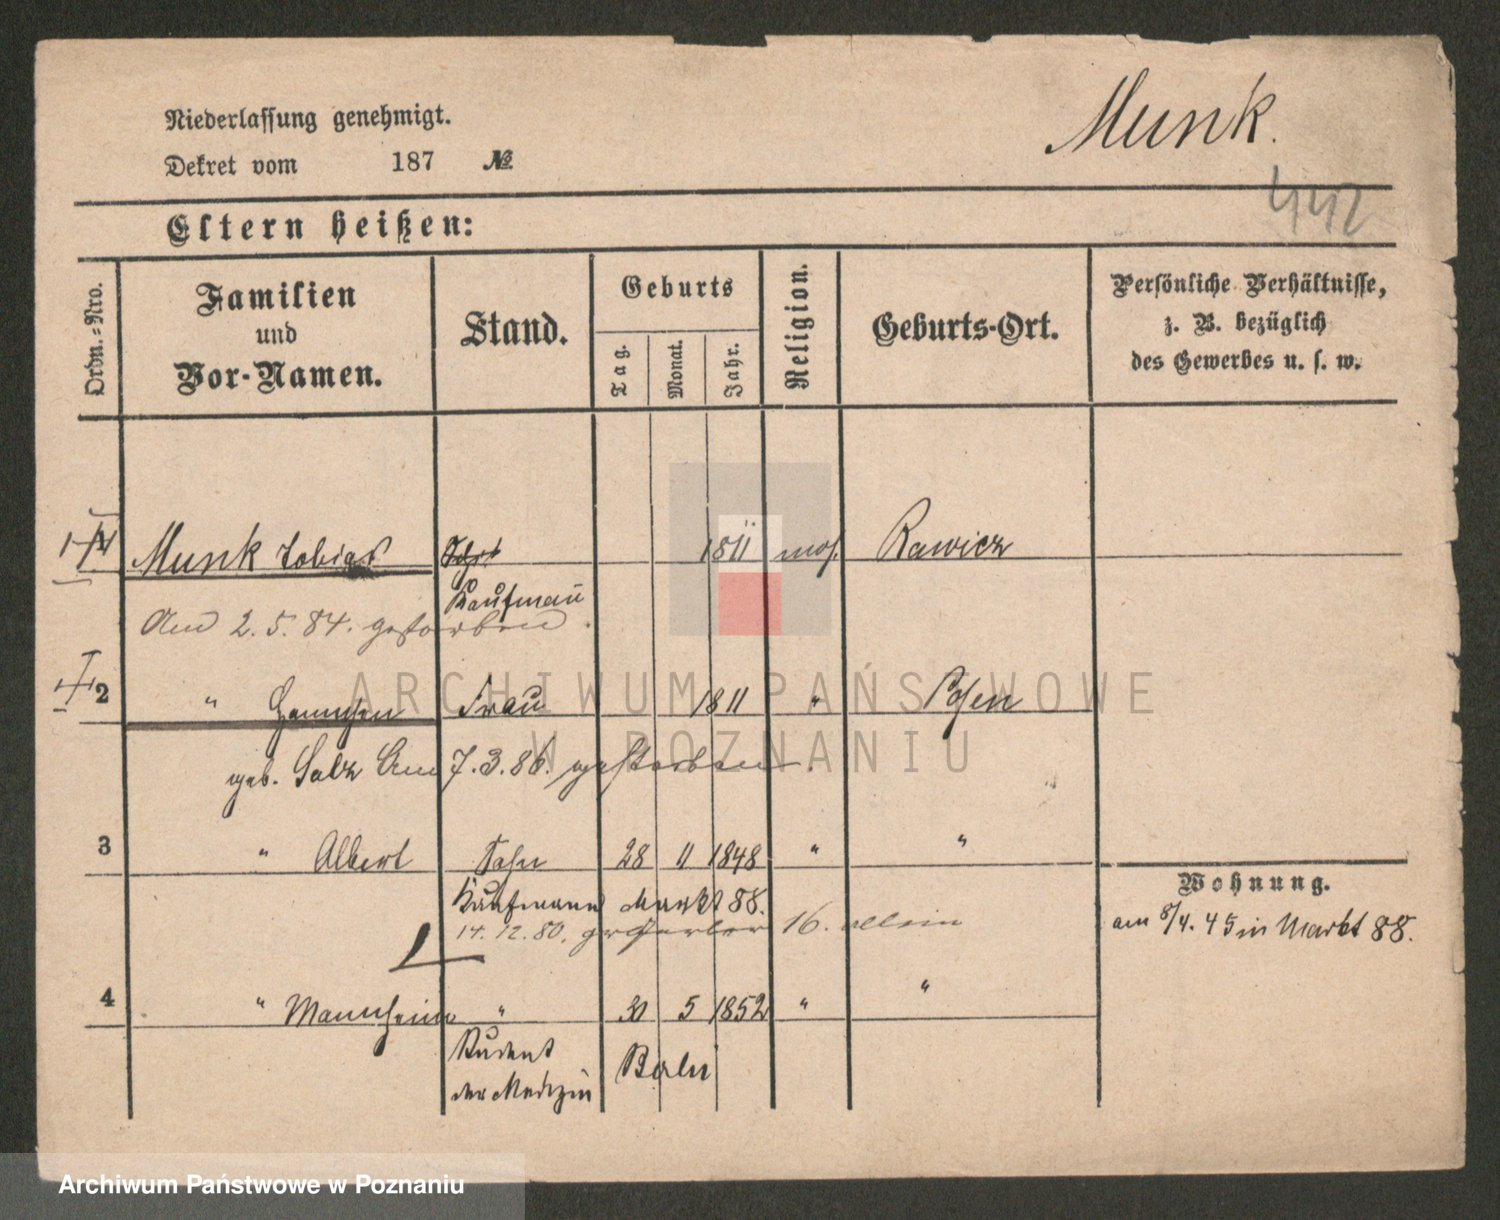 Niederlassung genehmigt.
Munk.
Dekret vom 187 №
442
Eltern heißen:
Ordn.-Nro.
Familien und Vor-Namen.
Stand.
Geburts
Tag.
Monat.
Jahr.
Religion.
Geburts-Ort.
Persönliche Verhältnisse,
z. B. bezüglich
des Gewerbes u. s. w.
1 Munk Tobias 1811 mos. Rawicz
Kaufmann
Am 2.5.84. gestorben.
2 " Hannchen Frau 1811 " Posen
geb. Salz Am 7.3.86. gestorben.
3 " Albert Sohn 28 11 1848 " "
Kaufmann Markt 88.
14.12.80. 16. allein
Wohnung.
am 8/4. 45 in Markt 88.
4 " Mannheim " 30 5 1852 " "
Student Berlin
der Medizin
ARCHIWUM PAŃSTWOWE
W POZNANIU
Archiwum Państwowe w Poznaniu